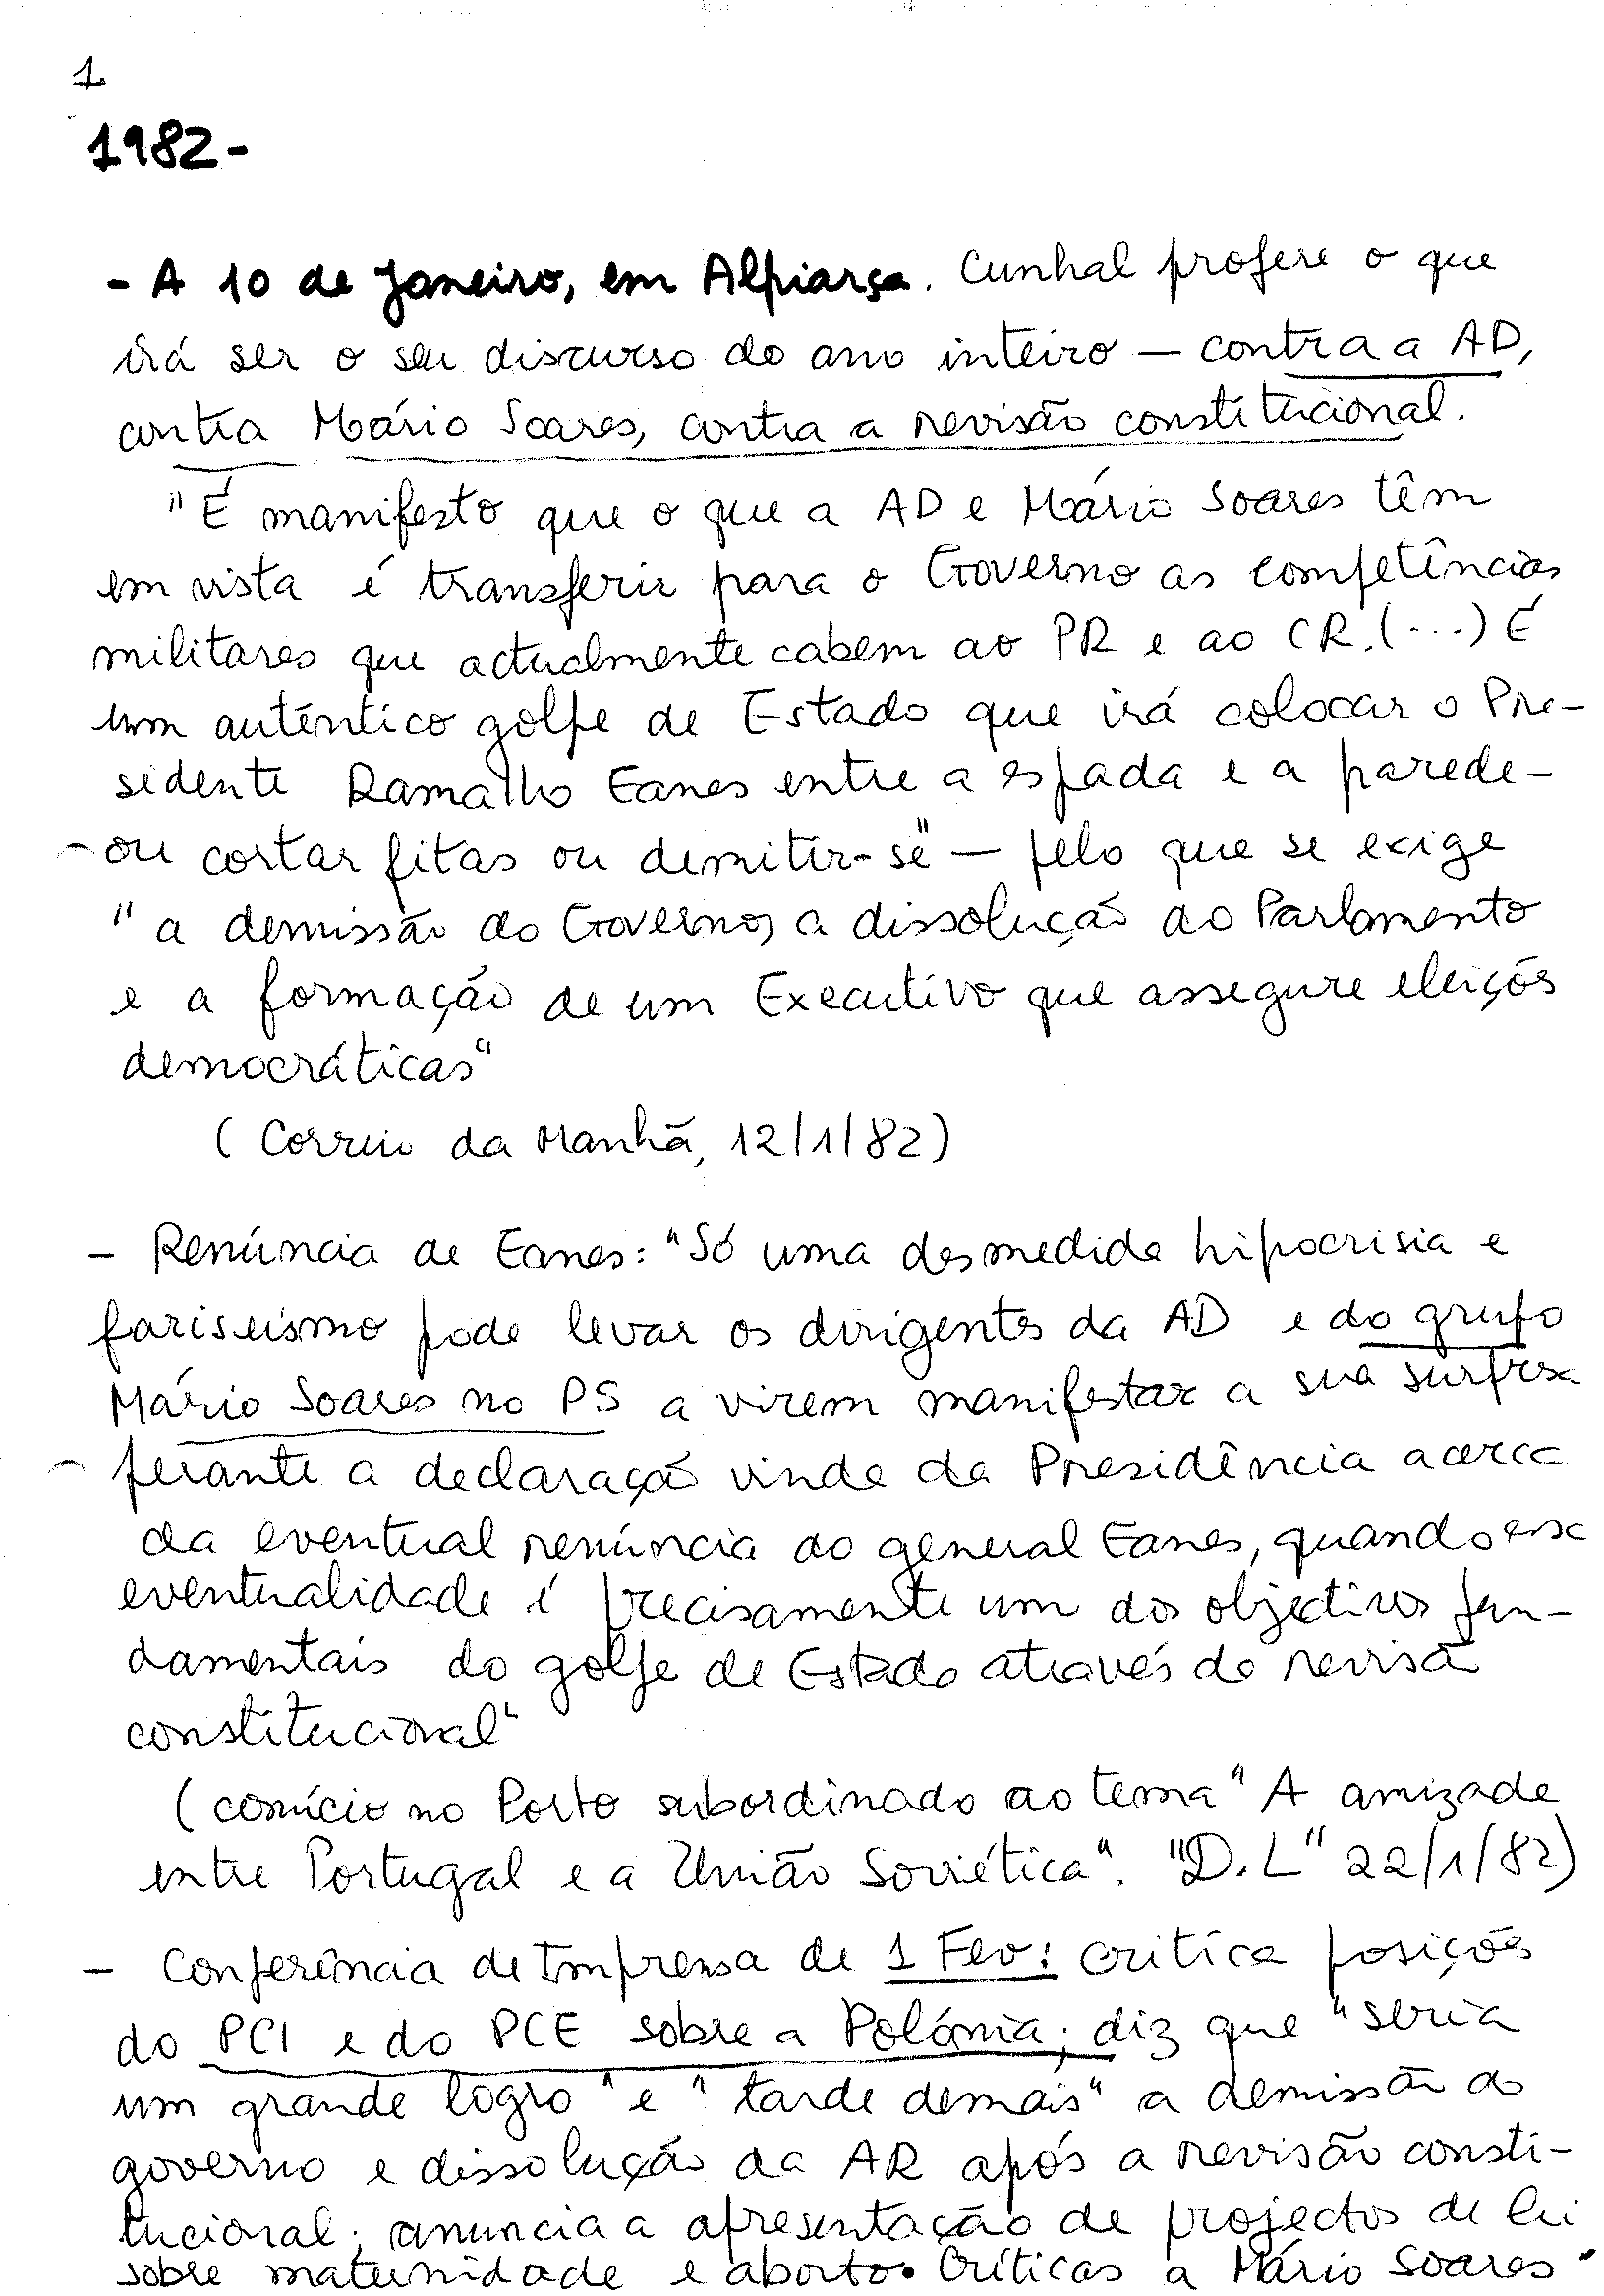 1
1982-
- A 10 de Janeiro, em Alpiarça. Cunhal profere o que
irá ser o seu discurso do ano inteiro — contra a AD,
contra Mário Soares, contra a revisão constitucional.
"É manifesto que o que a AD e Mário Soares têm
em vista é transferir para o Governo as competências
militares que actualmente cabem ao PR e ao CR. (...) É
um autêntico golpe de Estado que irá colocar o Pre-
sidente Ramalho Eanes entre a espada e a parede -
- ou cortar fitas ou demitir-se" — pelo que se exige
"a demissão do Governo, a dissolução do Parlamento
e a formação de um Executivo que assegure eleições
democráticas"
(Correio da Manhã, 12/1/82)
- Renúncia de Eanes: "Só uma desmedida hipocrisia e
fariseísmo pode levar os dirigentes da AD e do grupo
Mário Soares no PS a virem manifestar a sua surpresa
perante a declaração vinda da Presidência acerca
da eventual renúncia do general Eanes, quando essa
eventualidade é precisamente um dos objectivos fun-
damentais do golpe de Estado através da revisão
constitucional"
(comício no Porto subordinado ao tema "A amizade
entre Portugal e a União Soviética". "D.L" 22/1/82)
- Conferência de Imprensa de 1 Fev: critica posições
do PCI e do PCE sobre a Polónia; diz que "seria
um grande logro" e "tarde demais" a demissão do
governo e dissolução da AR após a revisão consti-
tucional; anuncia a apresentação de projectos de lei
sobre maternidade e aborto. Críticas a Mário Soares.